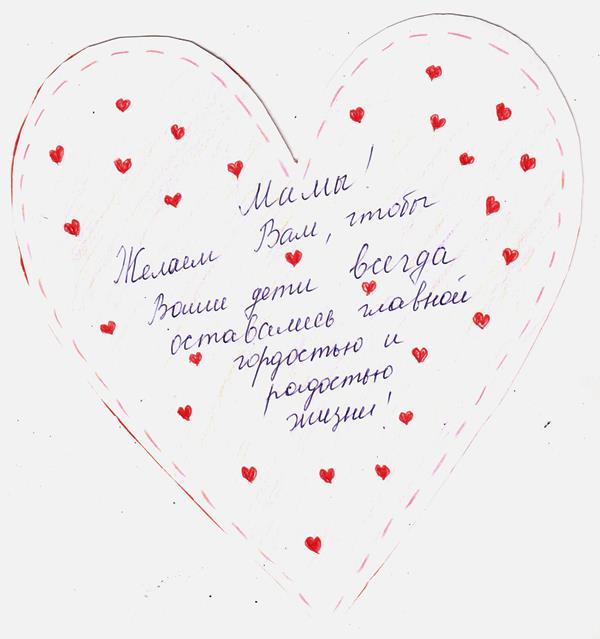 Мамы!
Желаем Вам, чтобы
Ваши дети всегда
оставались главной
гордостью и
радостью
жизни!